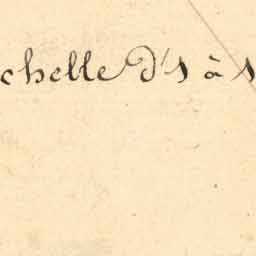 chelle d'1 à 1